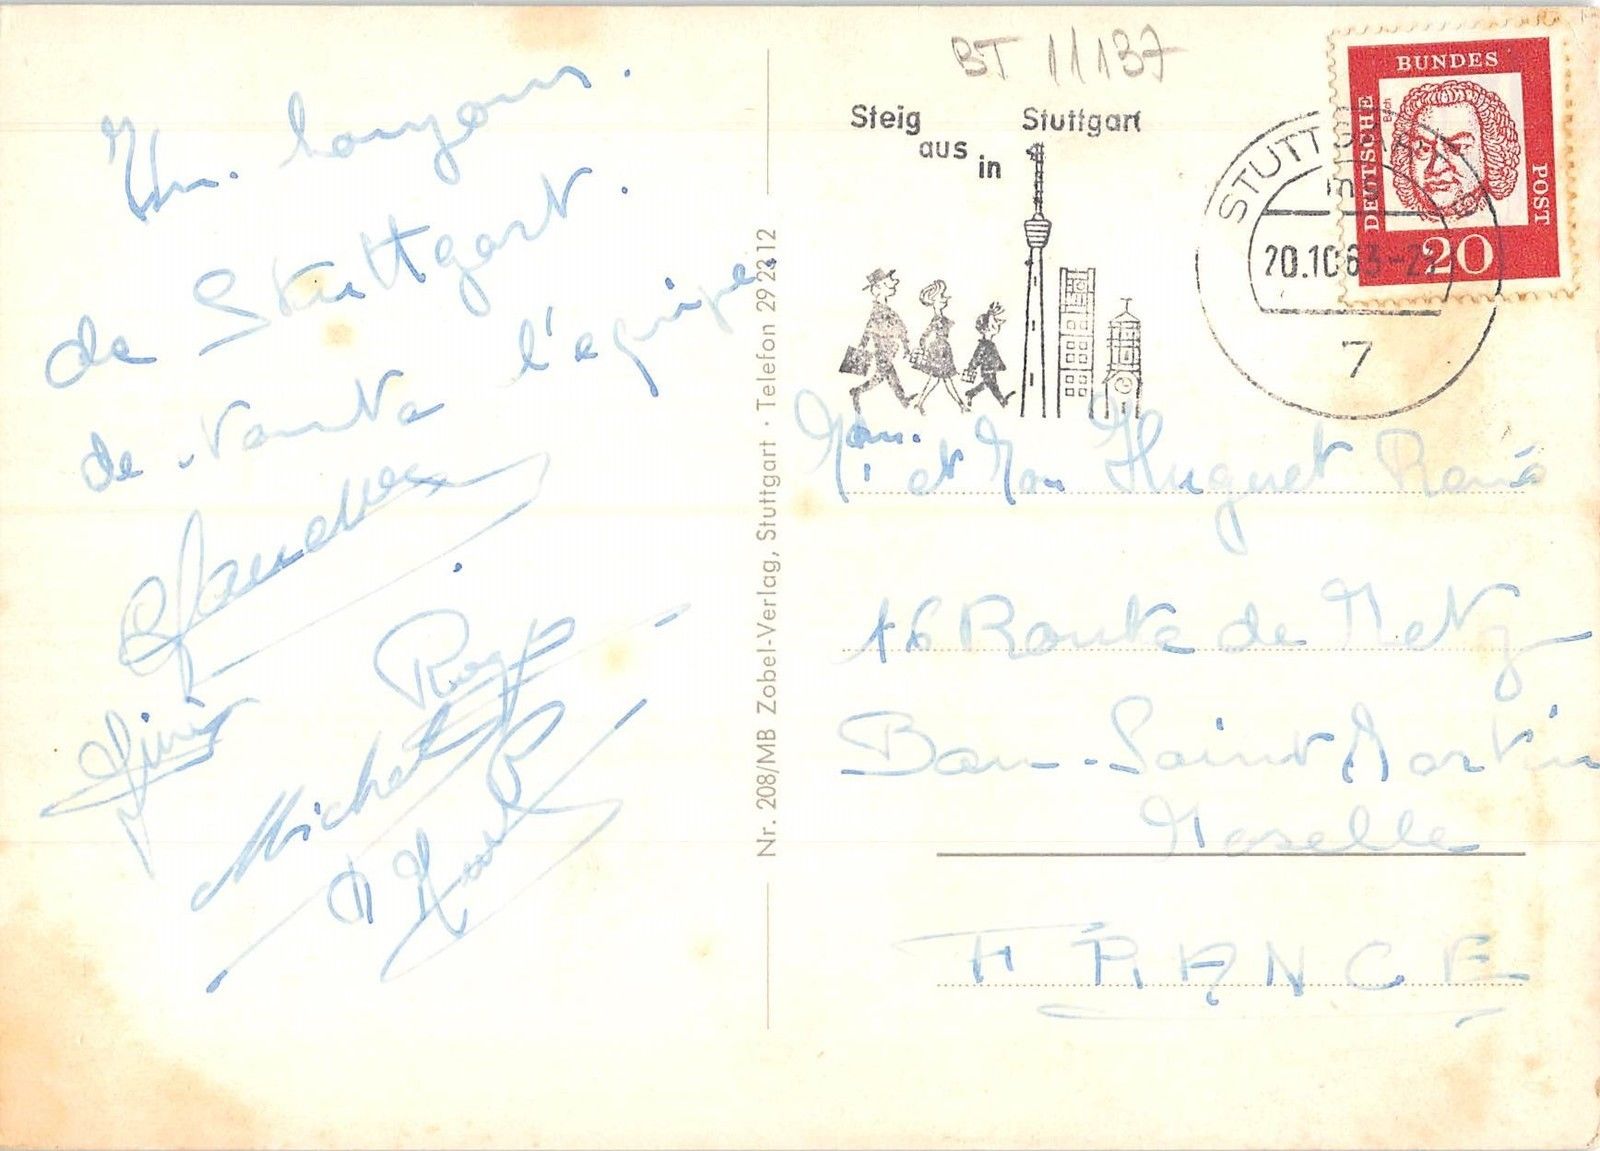 Un bonjour.
de Stuttgart.
de toute l'equipe.
Claudette
Roger
Michel
Nr. 208/MB Zobel-Verlag, Stuttgart · Telefon 29 22 12
BT 11137
Steig aus in Stuttgart
DEUTSCHE BUNDES POST
Bach
20
STUTTGART
20.10.63-21
7
Mam. et Mon Huguet René
16 Route de Metz
Ban-Saint Martin
Moselle
FRANCE